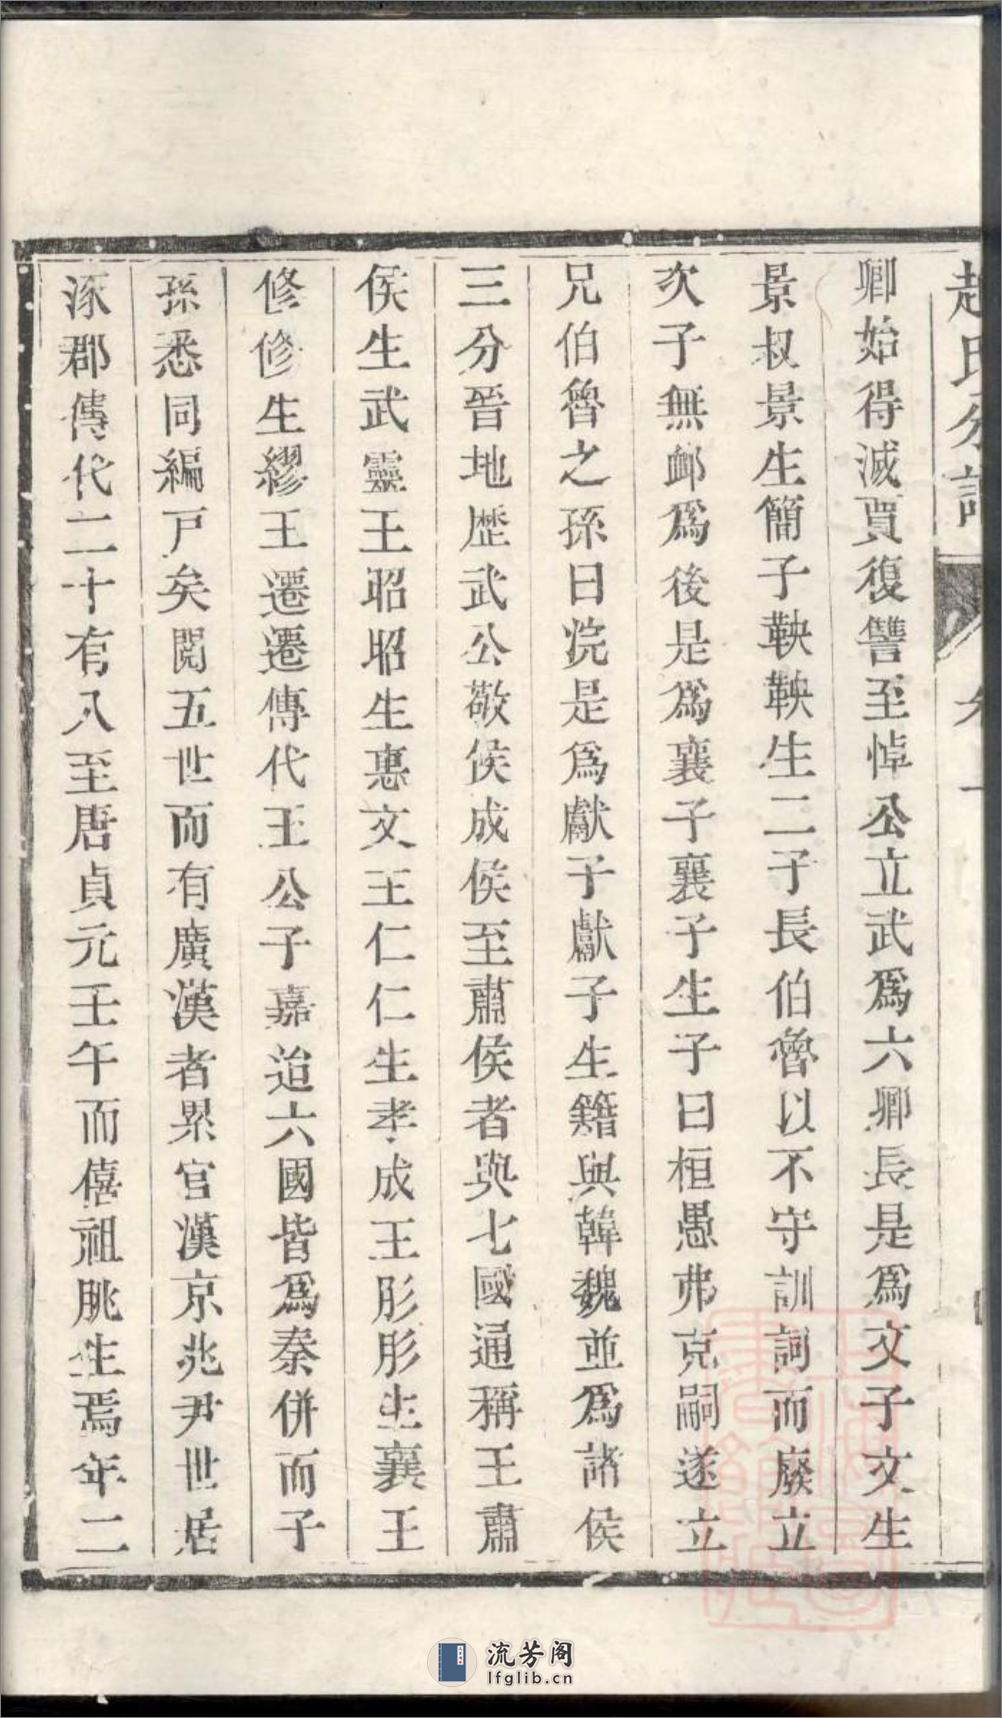 趙氏分譜 卷一
卿始得滅賈復讐至悼公立武爲六卿長是爲文子文生
景叔景生簡子鞅鞅生二子長伯魯以不守訓詞而廢立
次子無卹爲後是爲襄子襄子生子曰桓愚弗克嗣遂立
兄伯魯之孫曰浣是爲獻子獻子生籍與韓魏並爲諸侯
三分晉地歷武公敬侯成侯至肅侯者與七國通稱王肅
侯生武靈王昭昭生惠文王仁仁生孝成王彤彤生襄王
修修生繆王遷遷傳代王公子嘉迨六國皆爲秦併而子
孫悉同編戸矣閲五世而有廣漢者累官漢京兆尹世居
涿郡傳代二十有八至唐貞元壬午而僖祖朓生焉年二
流芳阁
lfglib.cn